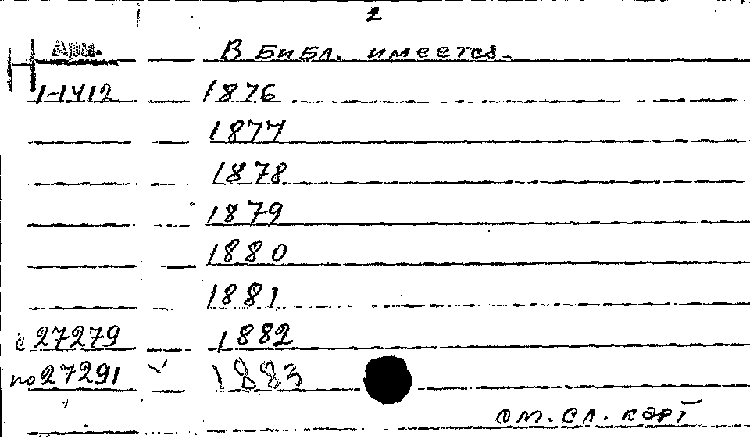 2
В библ. имеется.
1-1412 1876
1877
1878
1879
1880
1881
с 27279 1882
по 27291 1883
см. сл. карт